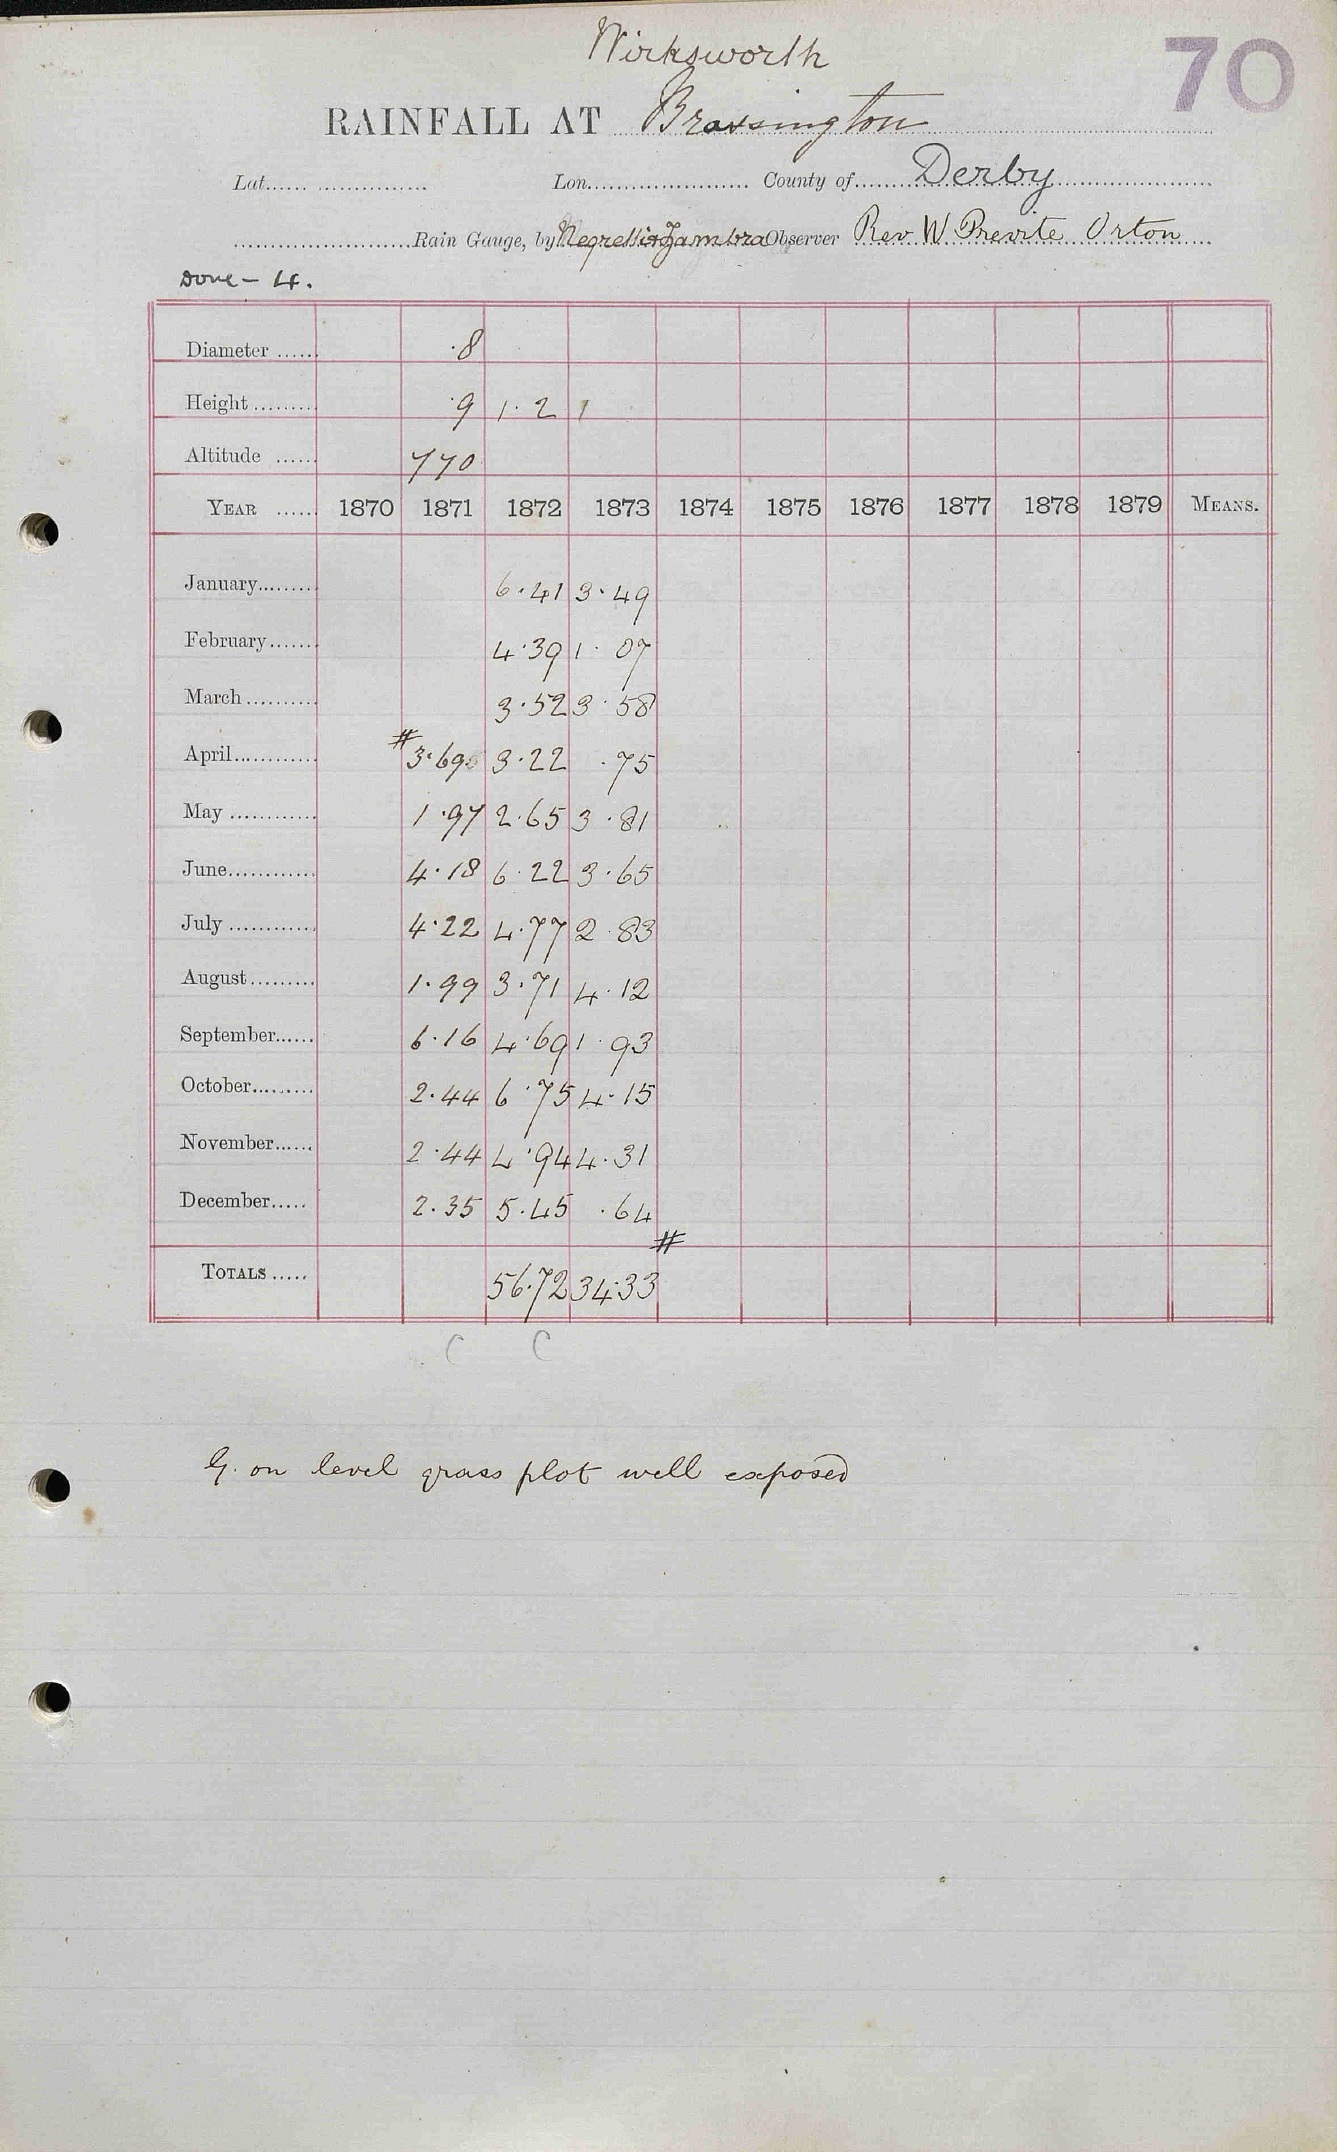 70
Wirksworth
RAINFALL AT Brassington
Lat. Lon. County of Derby
Rain Gauge, by Negretti & Zambra Observer Rev W Previte Orton
Done - 4.
Diameter ·8
Height ·9 1·2 1
Altitude 770
YEAR 1870 1871 1872 1873 1874 1875 1876 1877 1878 1879 MEANS.
January 6·41 3·49
February 4·39 1·07
March 3·52 3·58
April # 3·69 3·22 ·75
May 1·97 2·65 3·81
June 4·18 6·22 3·65
July 4·22 4·77 2·83
August 1·99 3·71 4·12
September 6·16 4·69 1·93
October 2·44 6·75 4·15
November 2·44 4·94 4·31
December 2·35 5·45 ·64
#
TOTALS 56·72 34·33
C C
G. on level grass plot well exposed